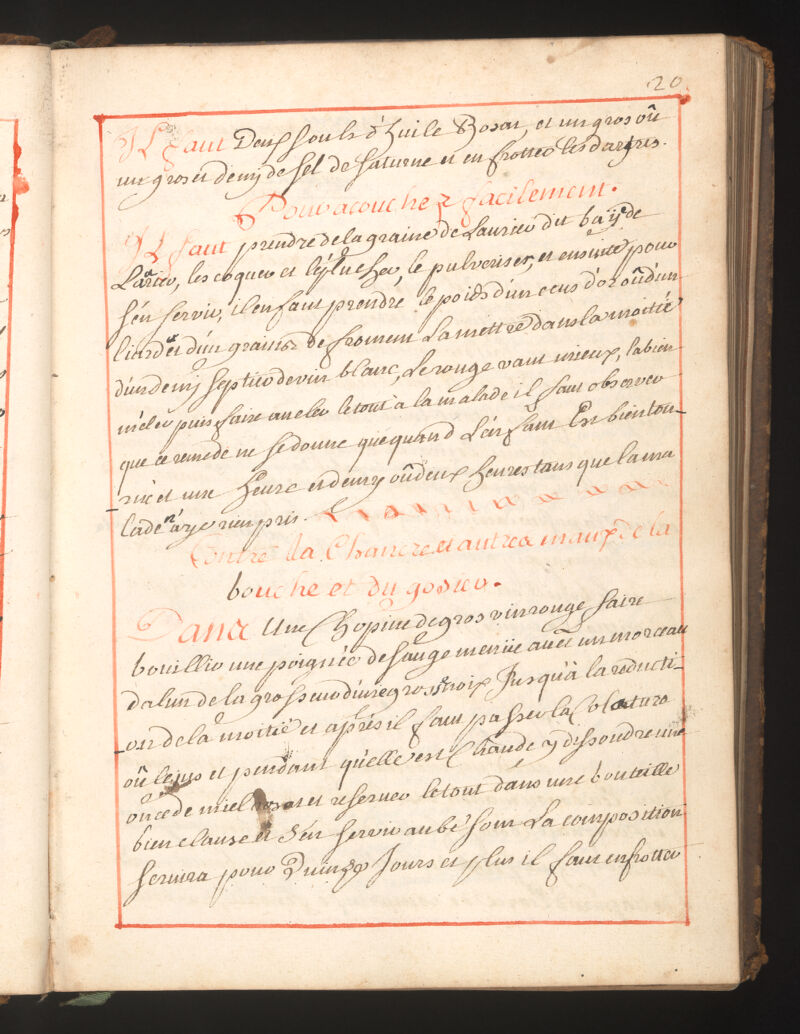 20
IL faut Deux souls d'huile Rosat, et un gros oû
un gros et demÿ de sel de saturne et en frotter les dartres.
Pour acoucher facilement.
IL faut prendre de la graine de Laurier dit baÿe de
Laurier, les coquer et l'éplucher, le pulveriser, et ensuitte pour
s'én servir, il en faut prendre le poids d'un ecus d'or oû d'un
liard et d'ún grain de froment La mettre dans la moitié
d'un demÿ septier de vin blanc, Le rouge vaut mieux, la bien
mêler puis faire avaler le tout à la malade il faut observer
que ce remede ne se donne que quand L'énfant Est bien tour-
né et une heure et demy oû deux heures sans que la ma
lade n'aÿe rien pris.
Contre la Chancre et autres maux de la
bouche et du gosier.
Dans Une Chopine de gros vin rouge faire
bouillir une poignée de sauge menüe avec un morceau
d'alun de la grosseur d'une grosse noix Jusqu'à la reducti-
-on de la moitié et aprés il faut passer la Colature
oû le jus et pendant qu'elle est Chaude y dissoudre une
once de miel rosat et reserver le tout dans une bouteille
bien clause et s'én servir au besoin La composition
servira pour Quinze Jours et plus il faut en frotter